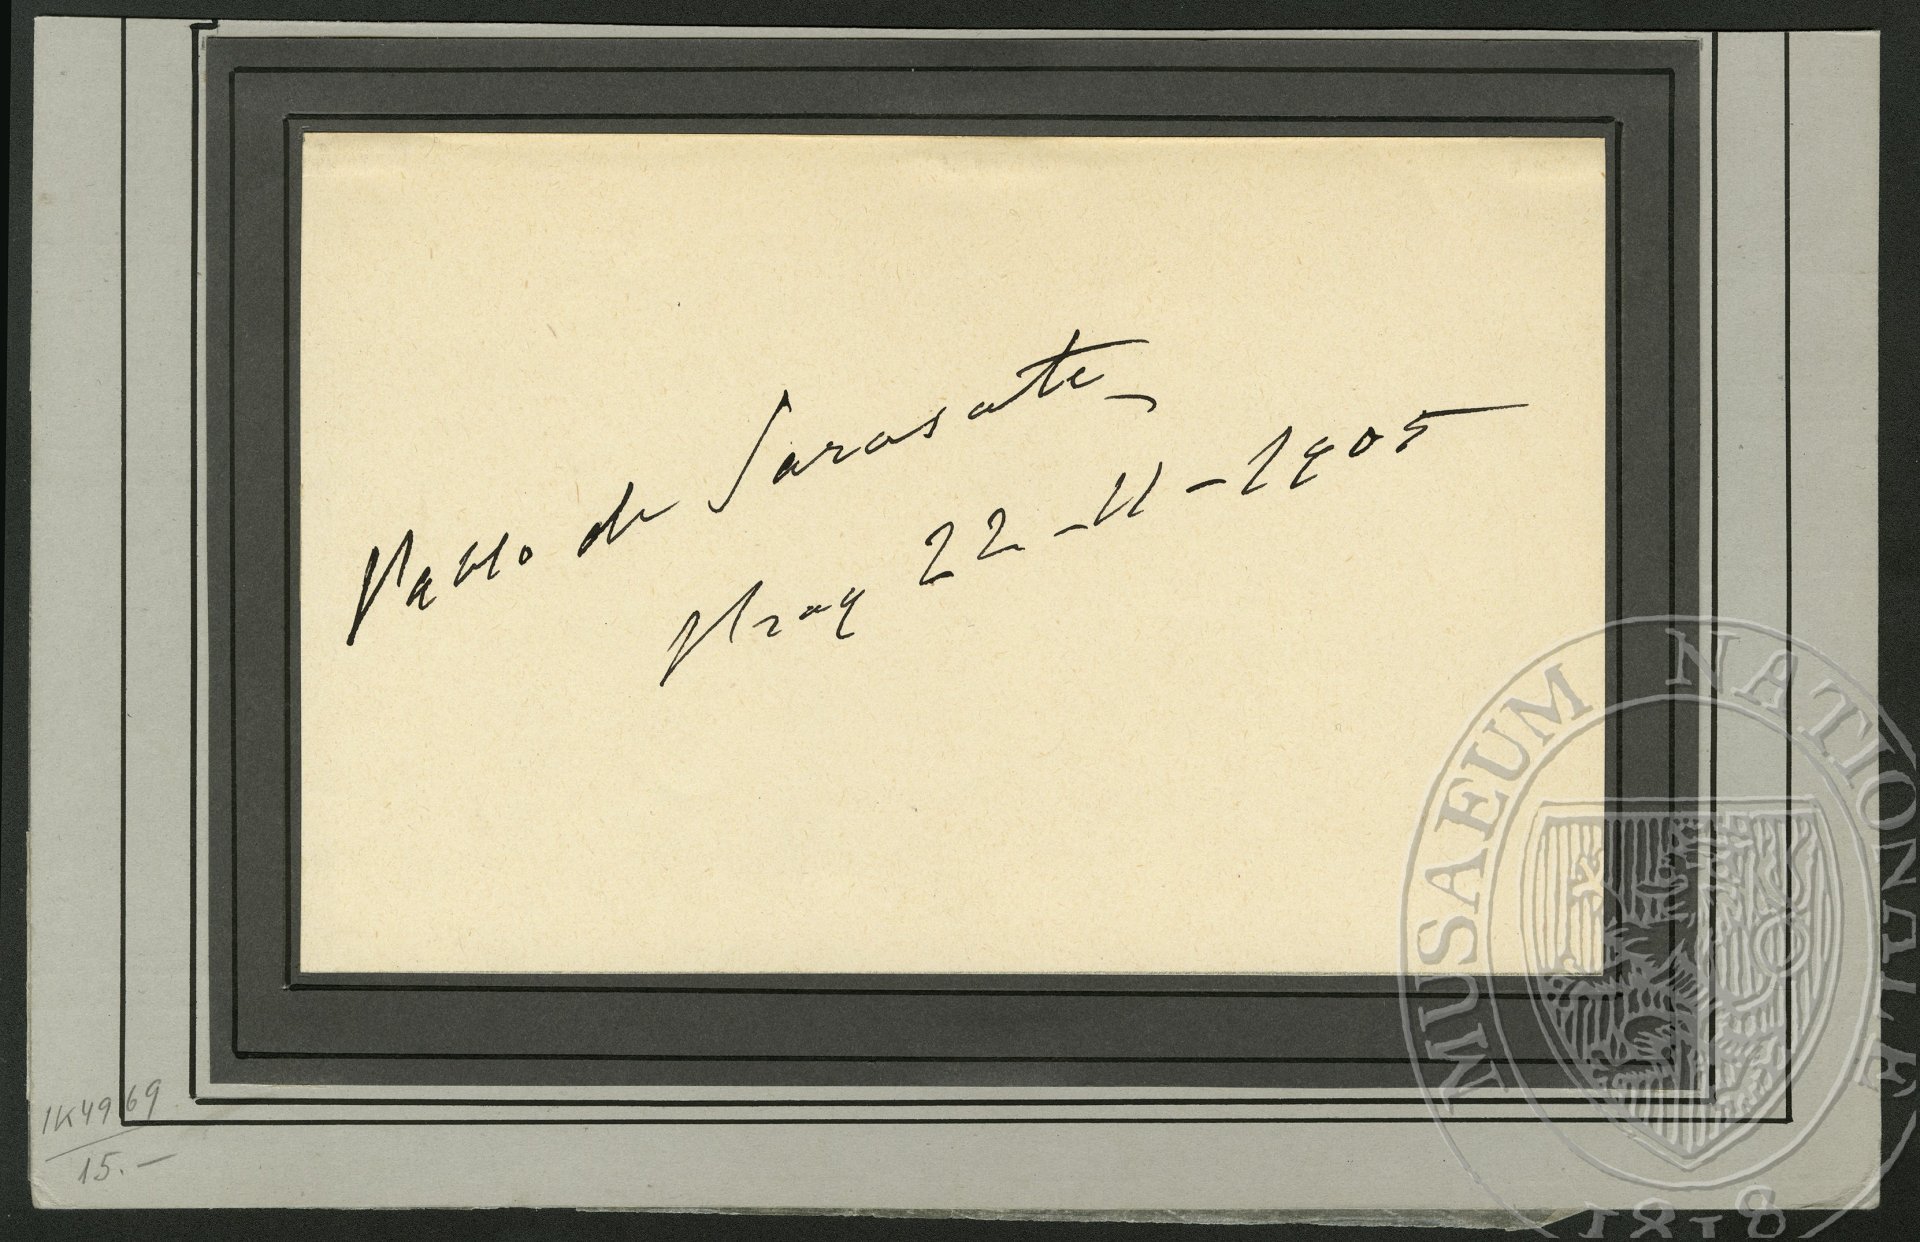 Pablo de Sarasate
Prag 22-11-1905
IK4969
15.-
MUSAEUM NATIONALE
1818